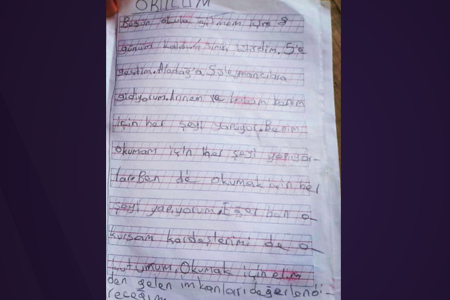 OKULUM
Bugün okula gitmem için 9
günüm kaldı. Sınıfı bitirdim, 5'e
geçtim. Aladağ'a Süleymancılara
gidiyorum. Annem ve babam benim
için her şeyi yapıyor. Benim
okumam için her şeyi yapıyor-
lar. Ben de okumak için her
şeyi yapıyorum. Eğer ben o-
kursam kardeşlerimi de o-
kuturum. Okumak için elim
den gelen imkanları değerlendi-
receğim